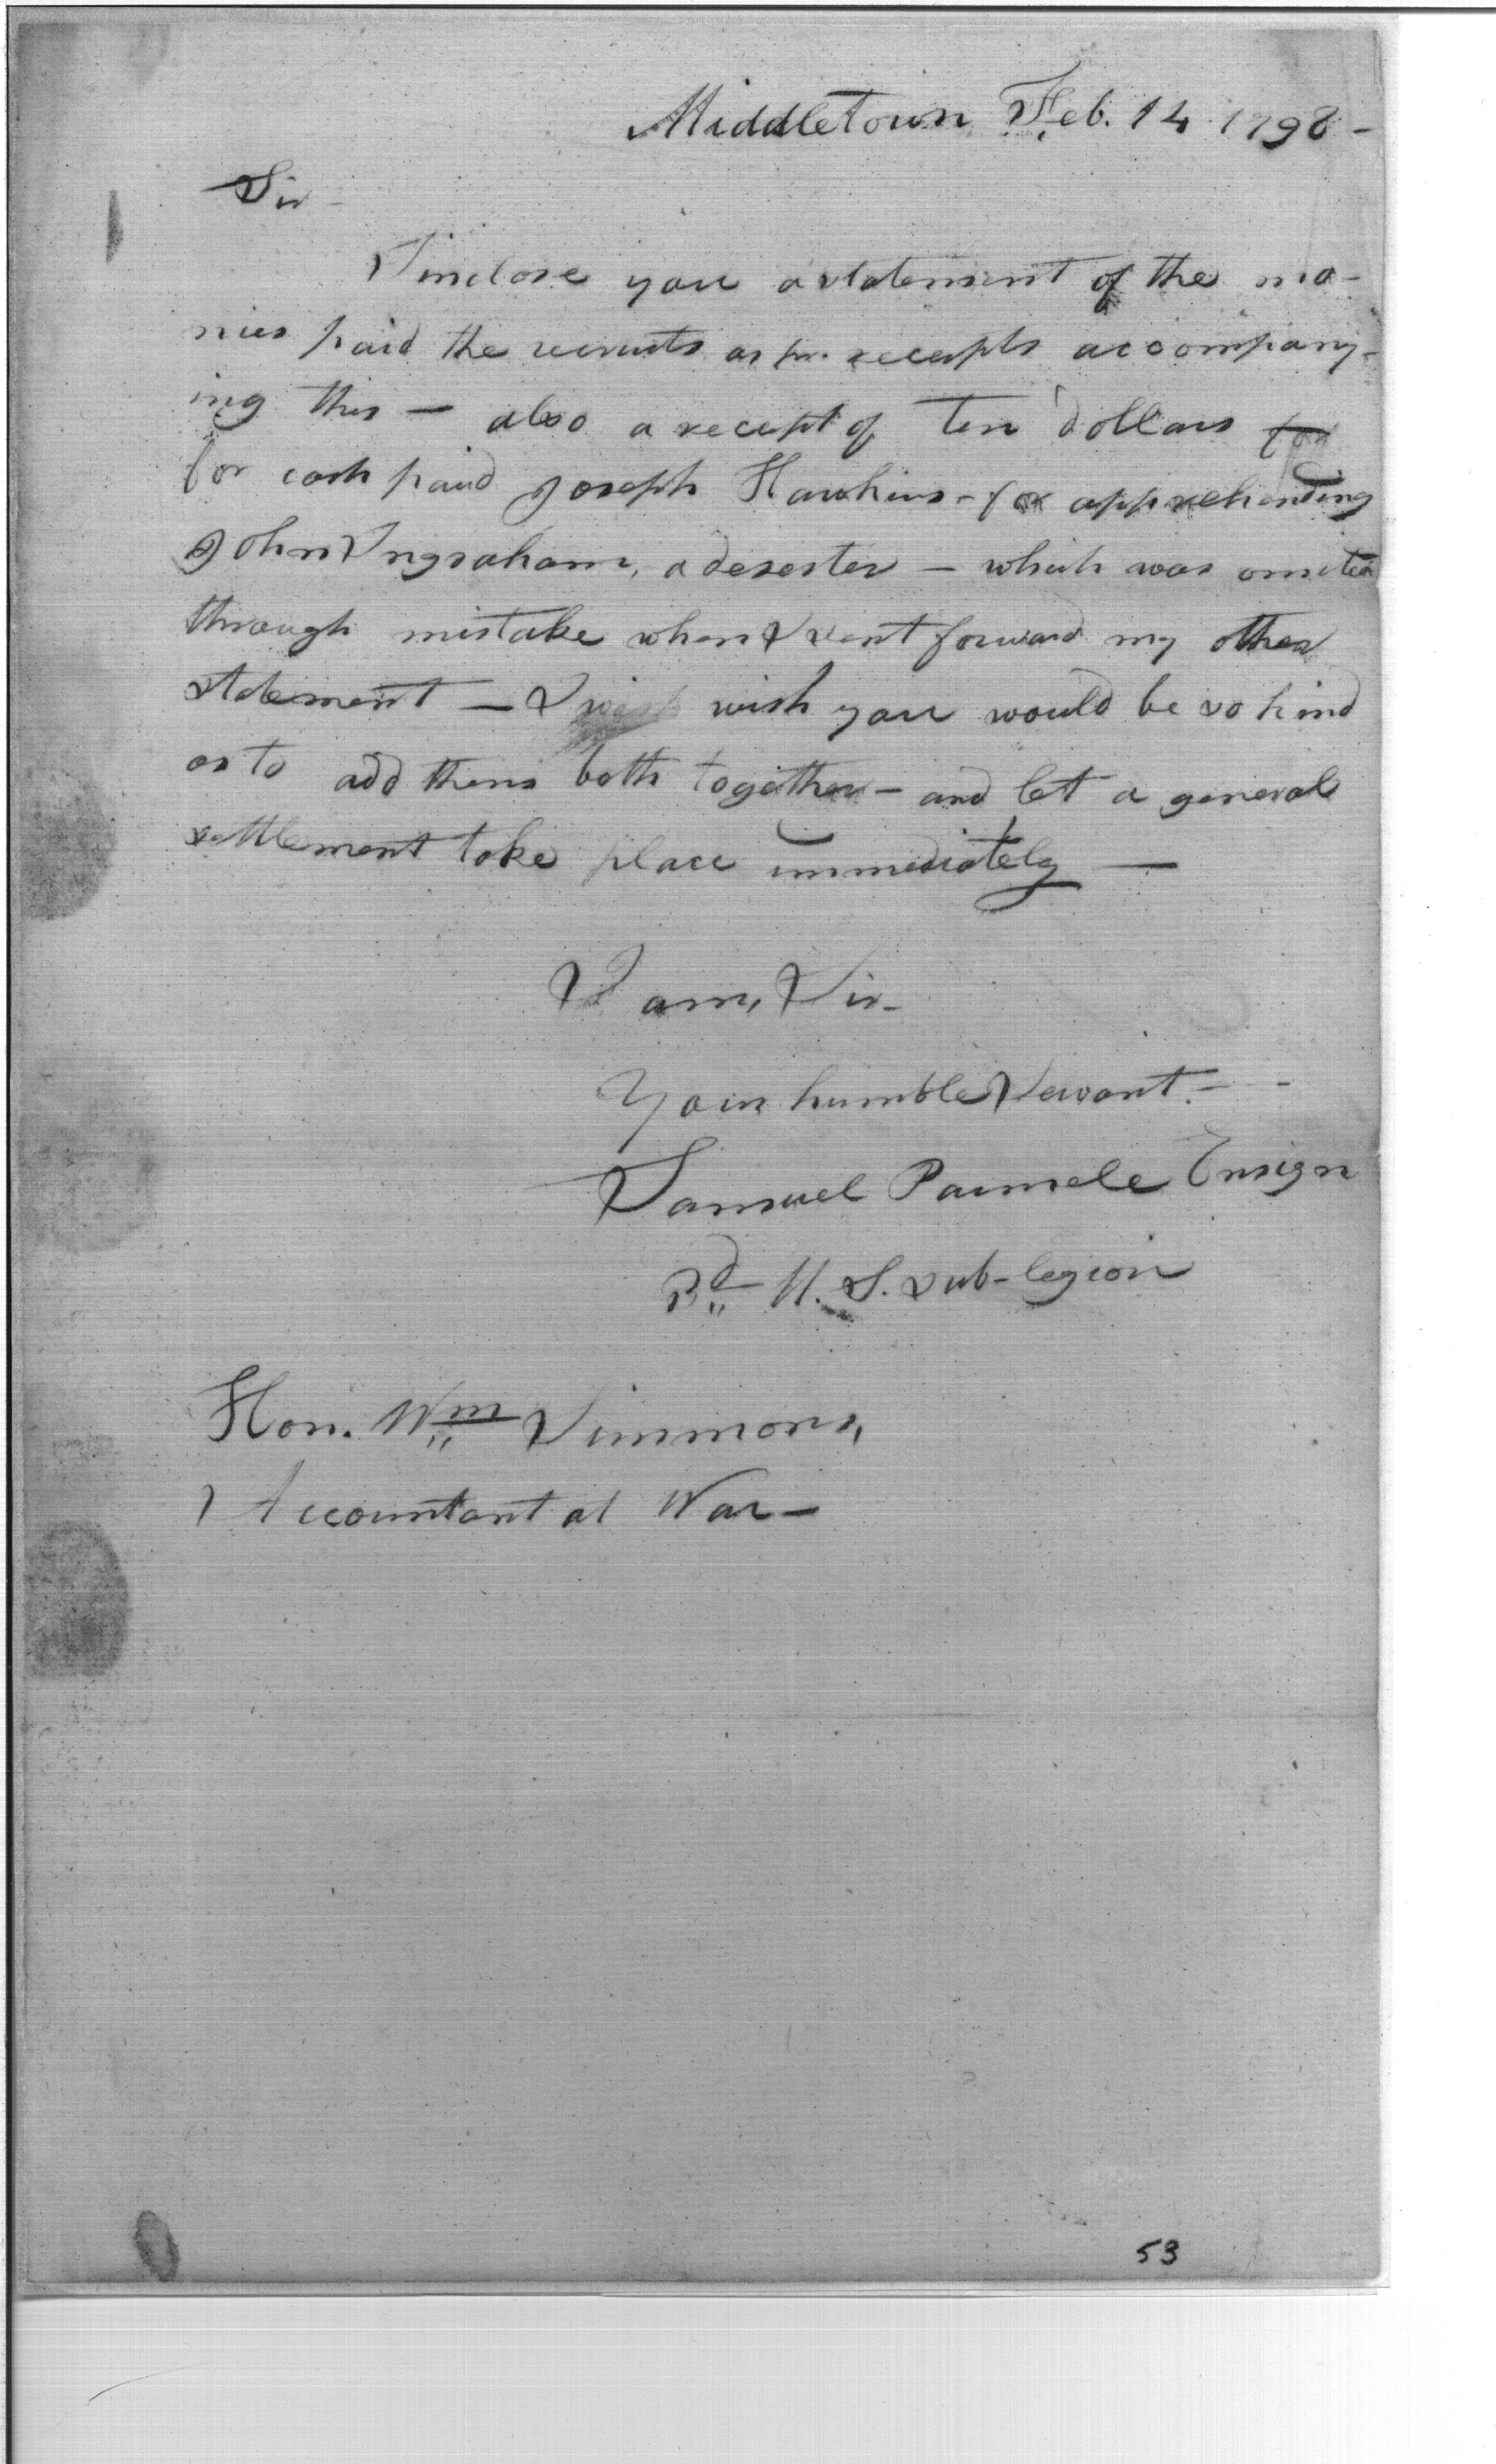 Middletown Feb. 14 1798 -
Sir -
I inclose you a statement of the mo-
nies paid the recruits as pr. receipts accompany-
ing this — also a receipt of Ten dollars for
for cash paid Joseph Hawkins - for apprehending
John Ingraham, a deserter — which was omited
through mistake when I sent forward my other
statement — I wish wish you would be so kind
as to add them both together - and let a general
settlement take place immediately —
I am, Sir -
Your humble Servant. - -
Samuel Parmele Ensign
3d U. S. sub-legion
Hon. Wm Simmons,
Accountant at War —
53